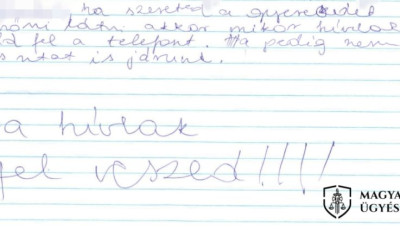 ha szereted a gyerekedet
látni akkor mikor hívlak
fel a telefont. Ha pedig nem
utat is járunk.
a hívlak
fel veszed!!!!
MAGYA
ÜGYÉS